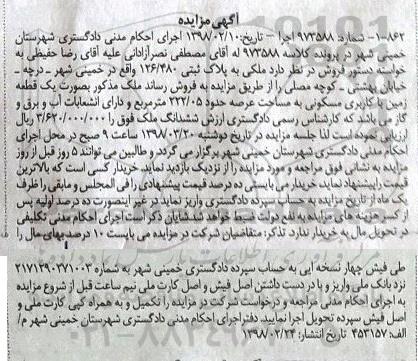 آگهی مزایده
۱۰-۸۶۲- شماره ۹۷۳۵۸۸ اجرا – تاریخ: ۱۳۹۸/۰۲/۱۰ اجرای احکام مدنی دادگستری شهرستان
خمینی شهر در پرونده کلاسه ۹۷۳۵۸۸ له آقای مصطفی نصرآزادانی علیه آقای رضا حفیظی به
خواسته دستور فروش در نظر دارد ملکی به پلاک ثبتی ۱۲۶/۴۸۰ واقع در خمینی شهر - درچه -
خیابان بهشتی - کوچه مصلی را از طریق مزایده به فروش رساند ملک مذکور بصورت یک قطعه
زمین با کاربری مسکونی به مساحت عرصه حدود ۲۲۲/۰۵ مترمربع و دارای انشعابات آب و برق و
گاز می باشد که کارشناس رسمی دادگستری ارزش ششدانگ ملک فوق را ۳/۶۲۰/۰۰۰/۰۰۰ ریال
ارزیابی نموده است لذا جلسه مزایده در تاریخ دوشنبه ۱۳۹۸/۰۳/۲۰ ساعت ۹ صبح در محل اجرای
احکام مدنی دادگستری شهرستان خمینی شهر برگزار می گردد و طالبین می توانند ۵ روز قبل از روز
مزایده به نشانی فوق مراجعه و مورد مزایده را از نزدیک بازدید نماید. خریدار کسی است که بالاترین
قیمت را پیشنهاد نماید خریدار می بایستی ده درصد قیمت پیشنهادی را فی المجلس و مابقی را ظرف
یک ماه از تاریخ مزایده به حساب سپرده دادگستری واریز نماید در غیر اینصورت ده درصد اولیه پس
از کسر هزینه های مزایده به نفع دولت ضبط خواهد شد. شایان ذکر است اجرای احکام مدنی تکلیفی
در تحویل مال به خریدار ندارد. تذکر: متقاضیان شرکت در مزایده می بایست ۱۰ درصد بهای مال را
طی فیش چهار نسخه ایی به حساب سپرده دادگستری خمینی شهر به شماره ۲۱۷۱۲۹۰۲۷۱۰۰۳
نزد بانک ملی واریز و با در دست داشتن اصل فیش و اصل کارت ملی نیم ساعت قبل از شروع مزایده
به اجرای احکام مدنی مراجعه و درخواست شرکت در مزایده را تکمیل و به همراه کپی کارت ملی و
اصل فیش سپرده تحویل اجرا نمایید. دفتر اجرای احکام مدنی دادگستری شهرستان خمینی شهر م/
الف: ۴۵۳۱۵۷ تاریخ انتشار: ۱۳۹۸/۰۲/۲۴